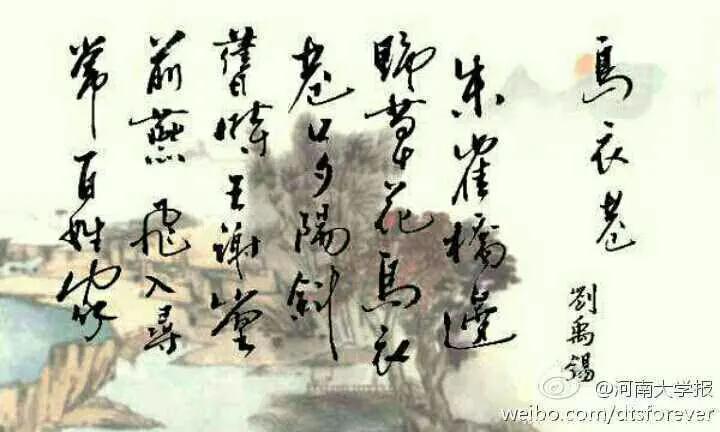 烏衣巷
劉禹錫
朱雀橋邊
野草花烏衣
巷口夕陽斜
舊時王謝堂
前燕飛入尋
常百姓家
@河南大学报
weibo.com/dtsforever